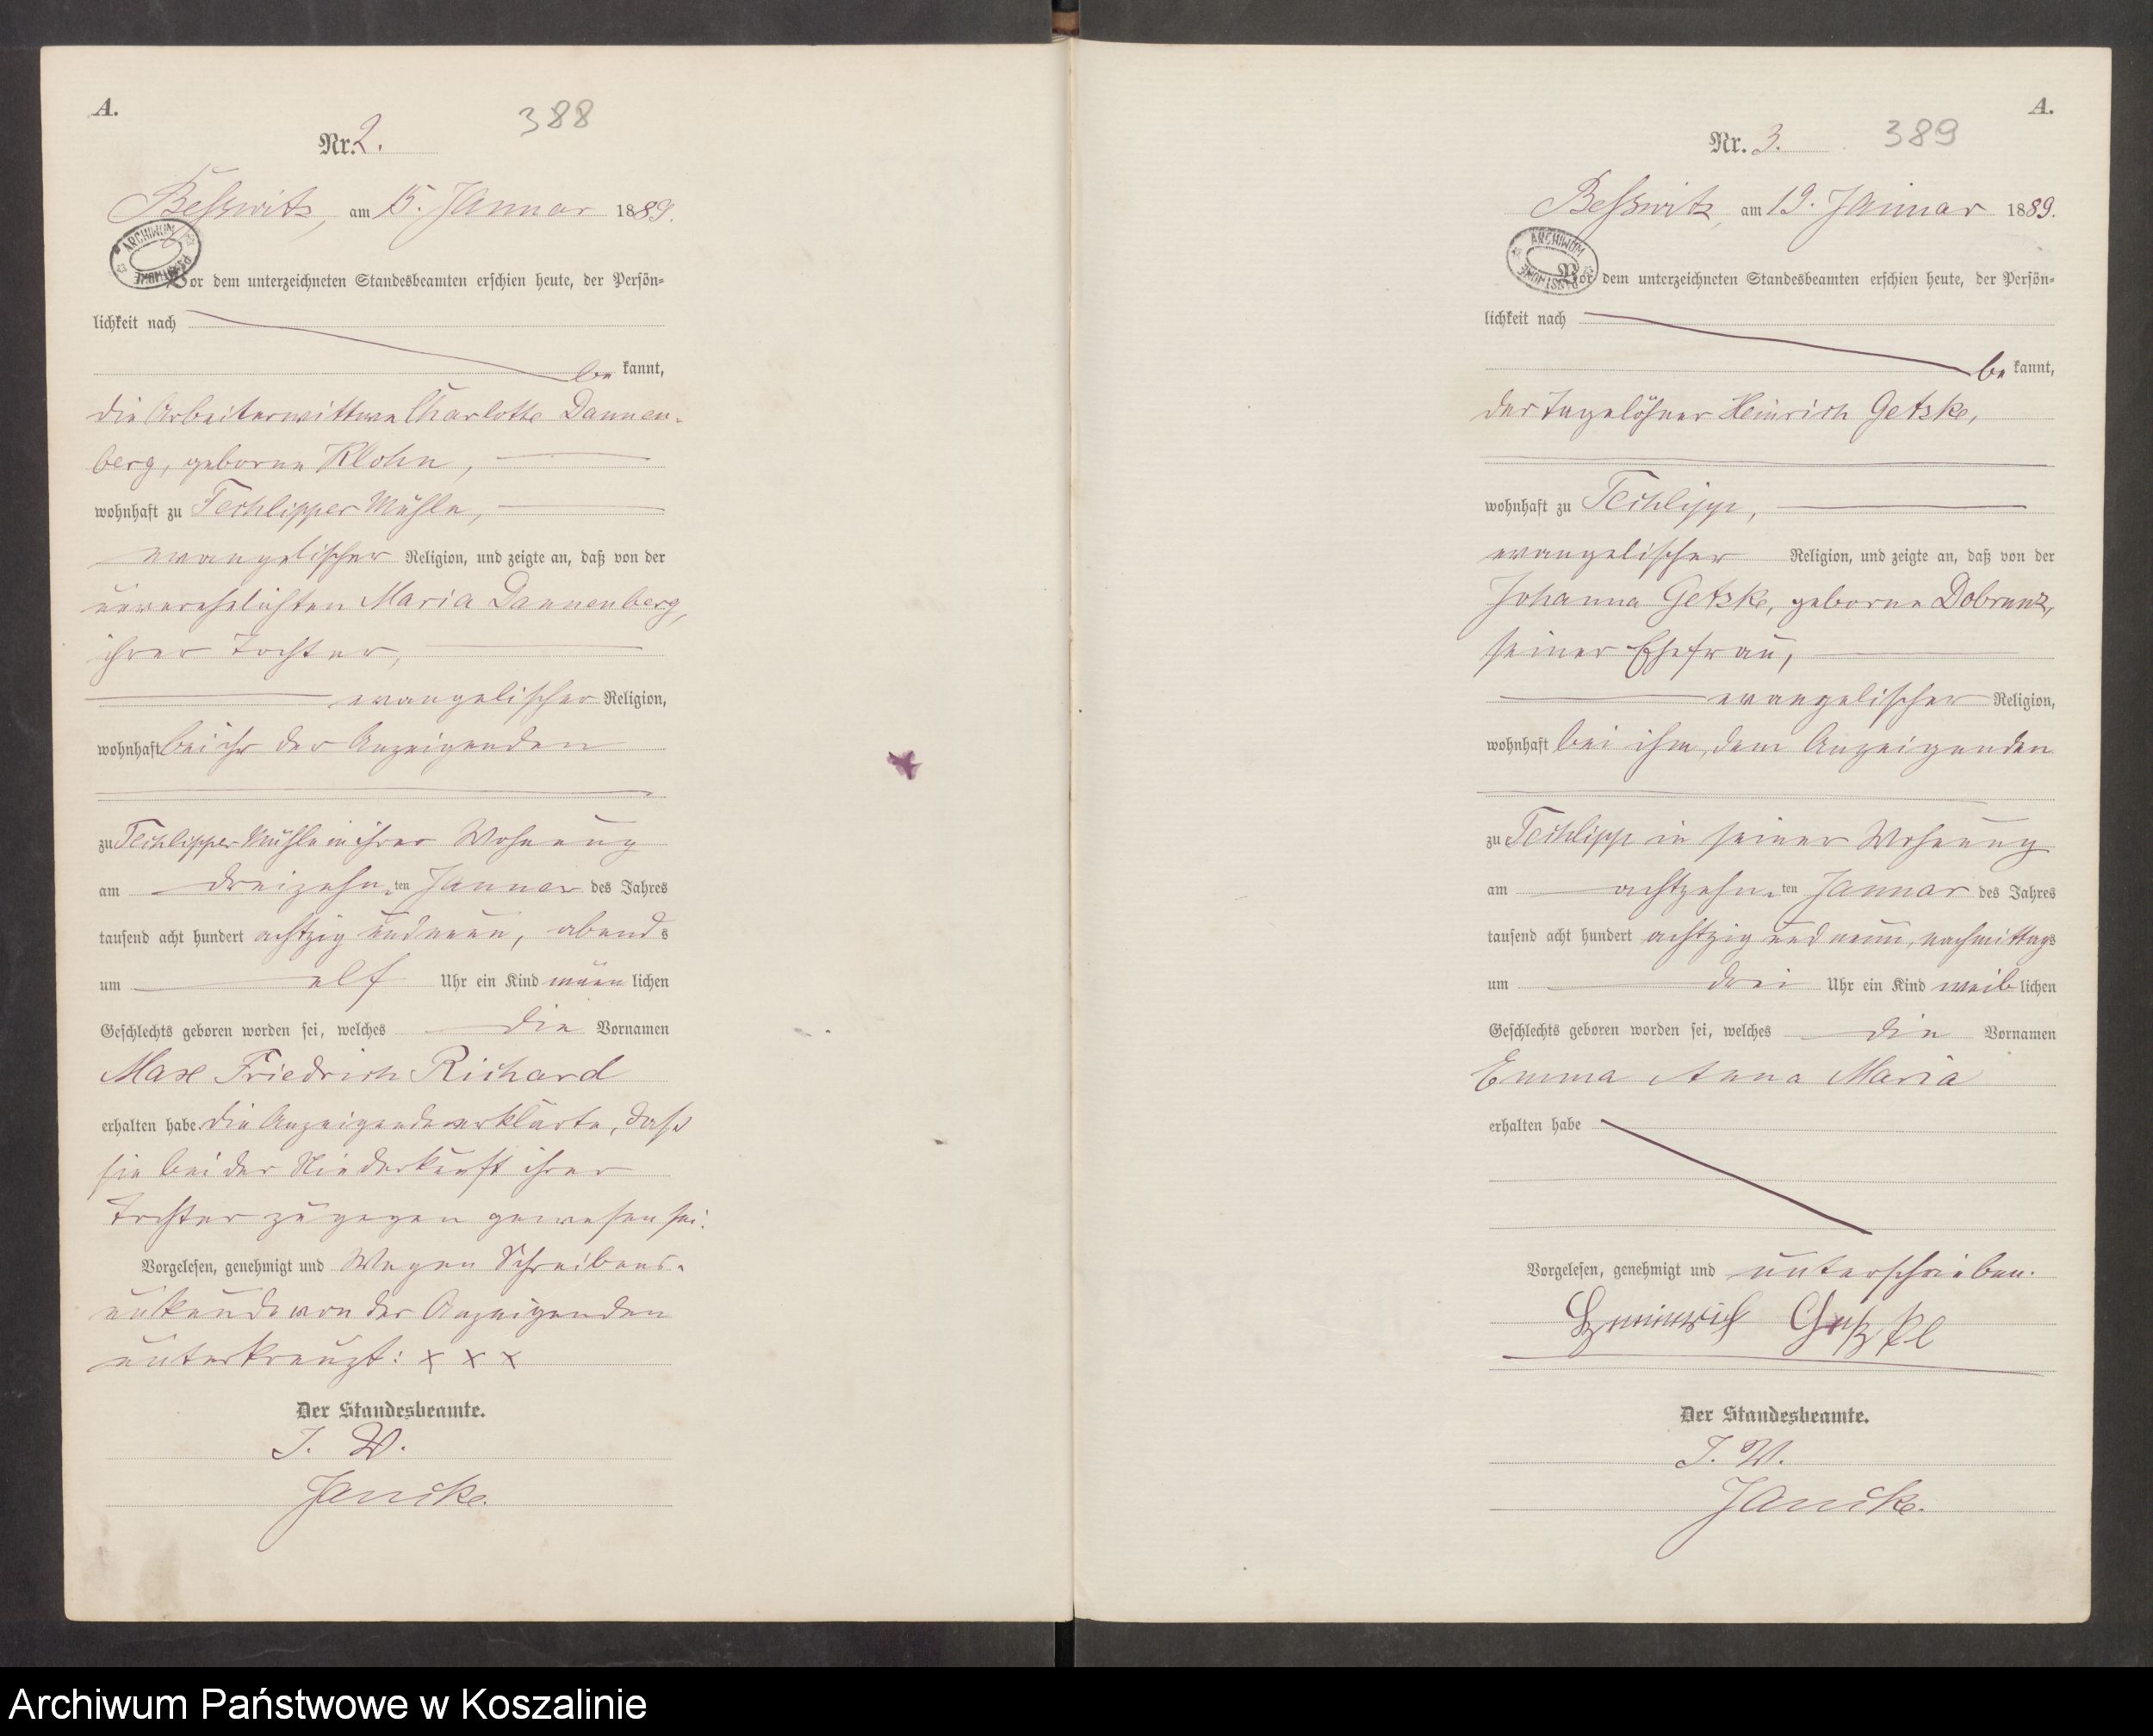 A.
388
Nr. 2.
Beßwitz, am 15. Januar 1889.
ARCHIWUM PAŃSTWOWE
Vor dem unterzeichneten Standesbeamten erschien heute, der Persön-
lichkeit nach
be kannt,
die Arbeiterwittwe Charlotte Dannen-
berg, geborne Klohn,
wohnhaft zu Techlipper Mühle,
evangelischer Religion, und zeigte an, daß von der
unverehelichten Maria Dannenberg,
ihrer Tochter,
evangelischer Religion,
wohnhaft bei ihr der Anzeigenden
zu Techlipper Mühle in ihrer Wohnung
am dreizehn ten Januar des Jahres
tausend acht hundert achtzig und neun, abends
um elf Uhr ein Kind männ lichen
Geschlechts geboren worden sei, welches die Vornamen
Max Friedrich Richard
erhalten habe. Die Anzeigende erklärte, daß
sie bei der Niederkunft ihrer
Tochter zugegen gewesen sei.
Vorgelesen, genehmigt und Wegen Schreibens-
unkunde von der Anzeigenden
unterkreuzt: x x x
Der Standesbeamte.
I. V.
Jancke.
A.
389
Nr. 3.
Beßwitz, am 19. Januar 1889.
ARCHIWUM PAŃSTWOWE
Vor dem unterzeichneten Standesbeamten erschien heute, der Persön-
lichkeit nach
be kannt,
der Tagelöhner Heinrich Getzke,
wohnhaft zu Techlipp,
evangelischer Religion, und zeigte an, daß von der
Johanna Getzke, geborne Dobrunz,
seiner Ehefrau,
evangelischer Religion,
wohnhaft bei ihm, dem Anzeigenden
zu Techlipp in seiner Wohnung
am achtzehn ten Januar des Jahres
tausend acht hundert achtzig und neun, nachmittags
um drei Uhr ein Kind weib lichen
Geschlechts geboren worden sei, welches die Vornamen
Emma Anna Maria
erhalten habe
Vorgelesen, genehmigt und unterschrieben.
Heinrich Getzke
Der Standesbeamte.
I. V.
Jancke.
Archiwum Państwowe w Koszalinie